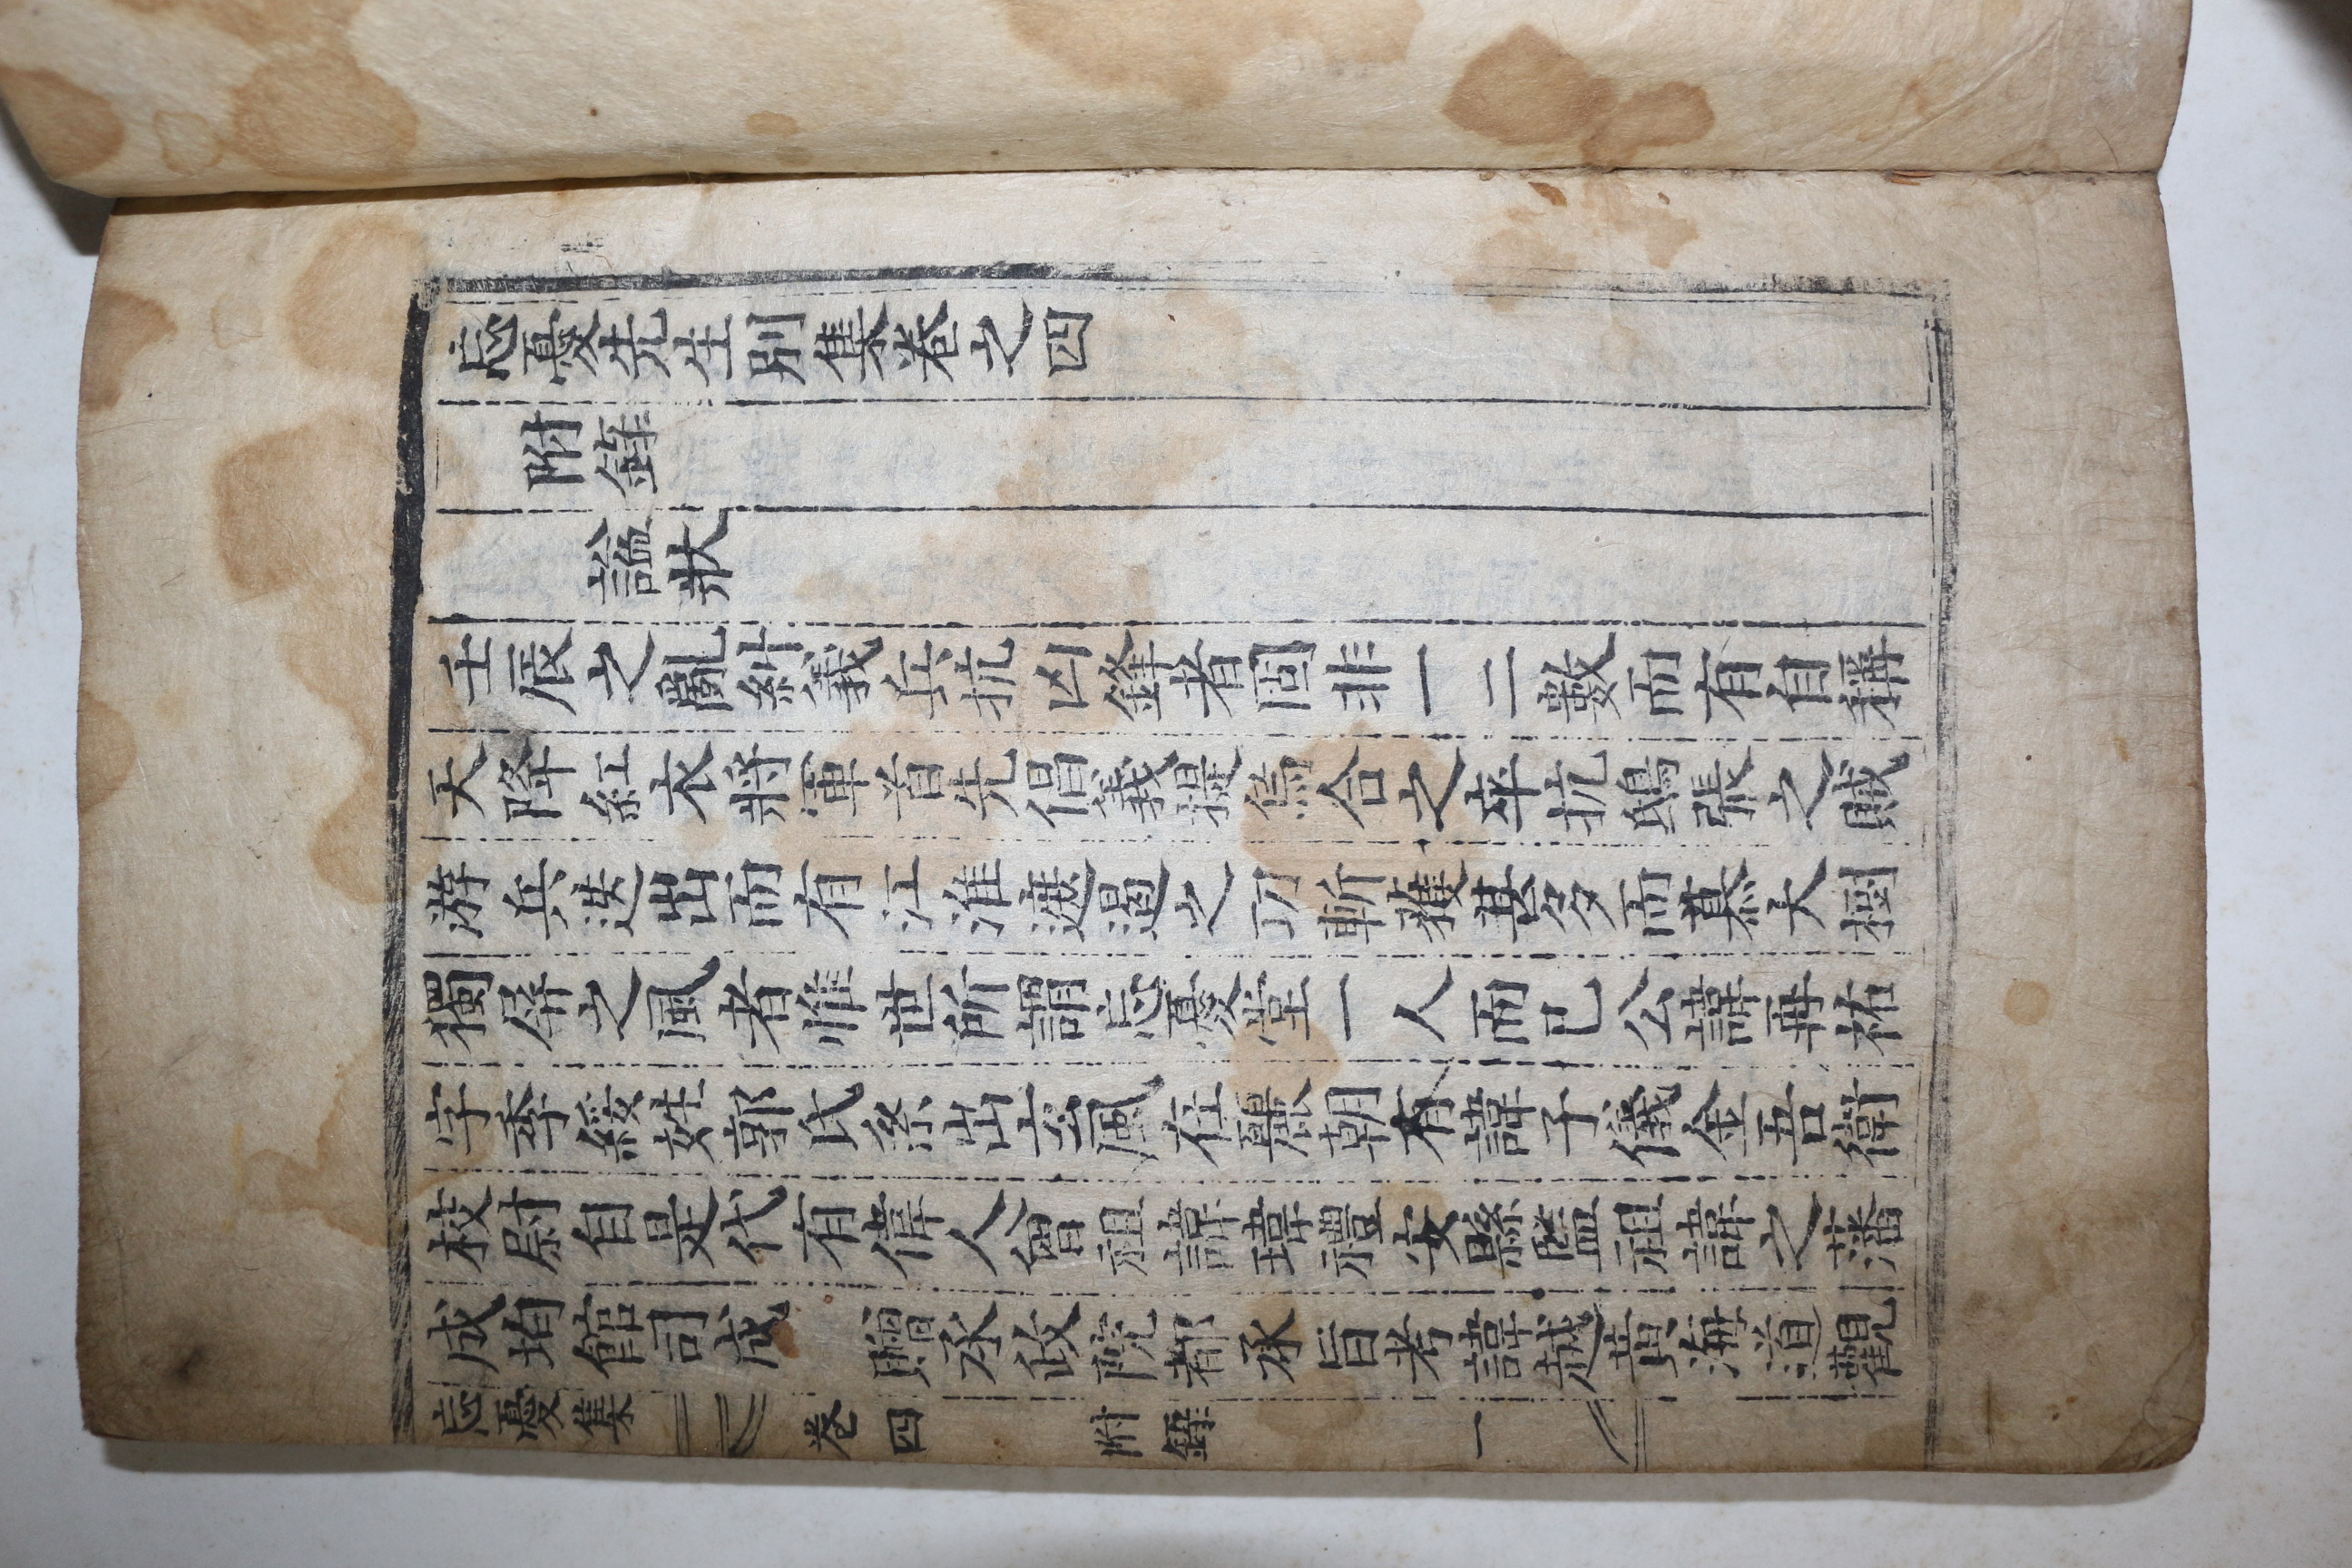 忘憂先生別集卷之四
附錄
諡狀
壬辰之亂糾義兵抗凶鋒者固非一二數而有自稱
天降紅衣將軍首先倡義提烏合之卒抗鴟張之賊
游兵迭出而有江淮遮遏之功斬獲甚多而慕大樹
獨屏之風者惟世所謂忘憂堂一人而已公諱再祐
字季綏姓郭氏系出玄風在麗朝有諱子儀金吾衛
校尉自是代有偉人曾祖諱瑋禮安縣監祖諱之藩
成均館司成 贈承政院都承旨考諱越黃海道觀
忘憂集 卷四 附錄 一